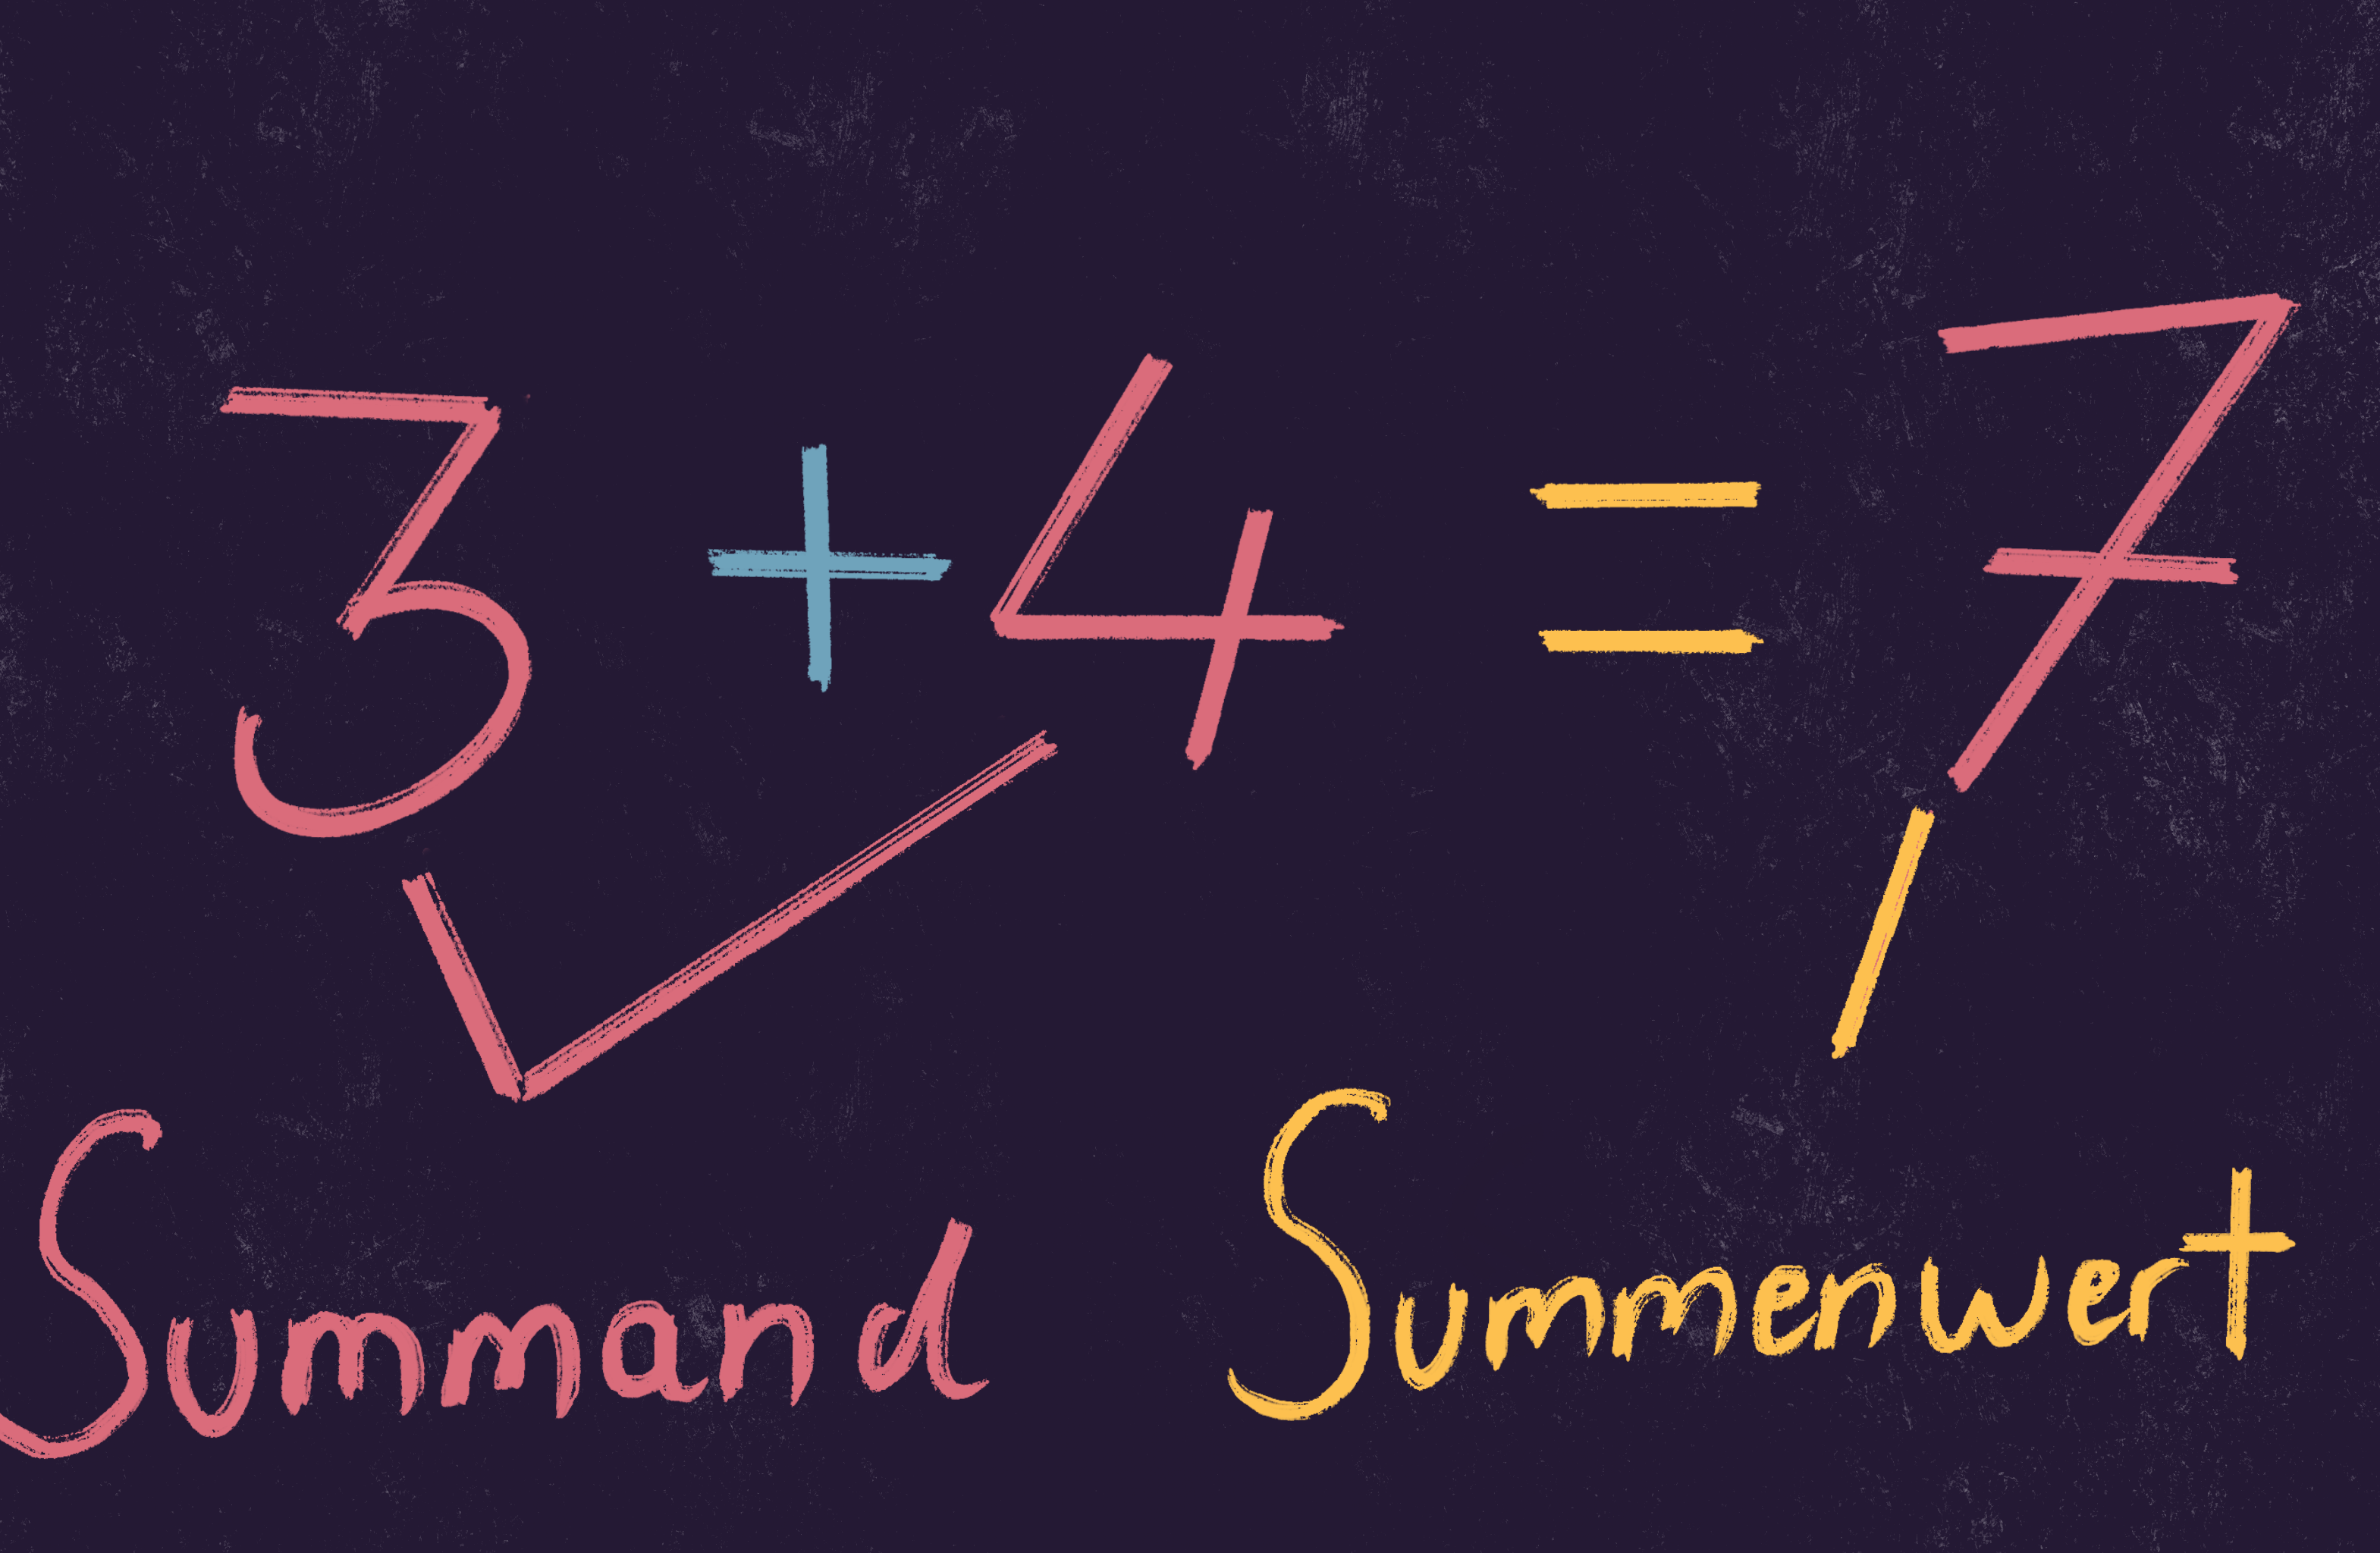 3 + 4 = 7
Summand Summenwert